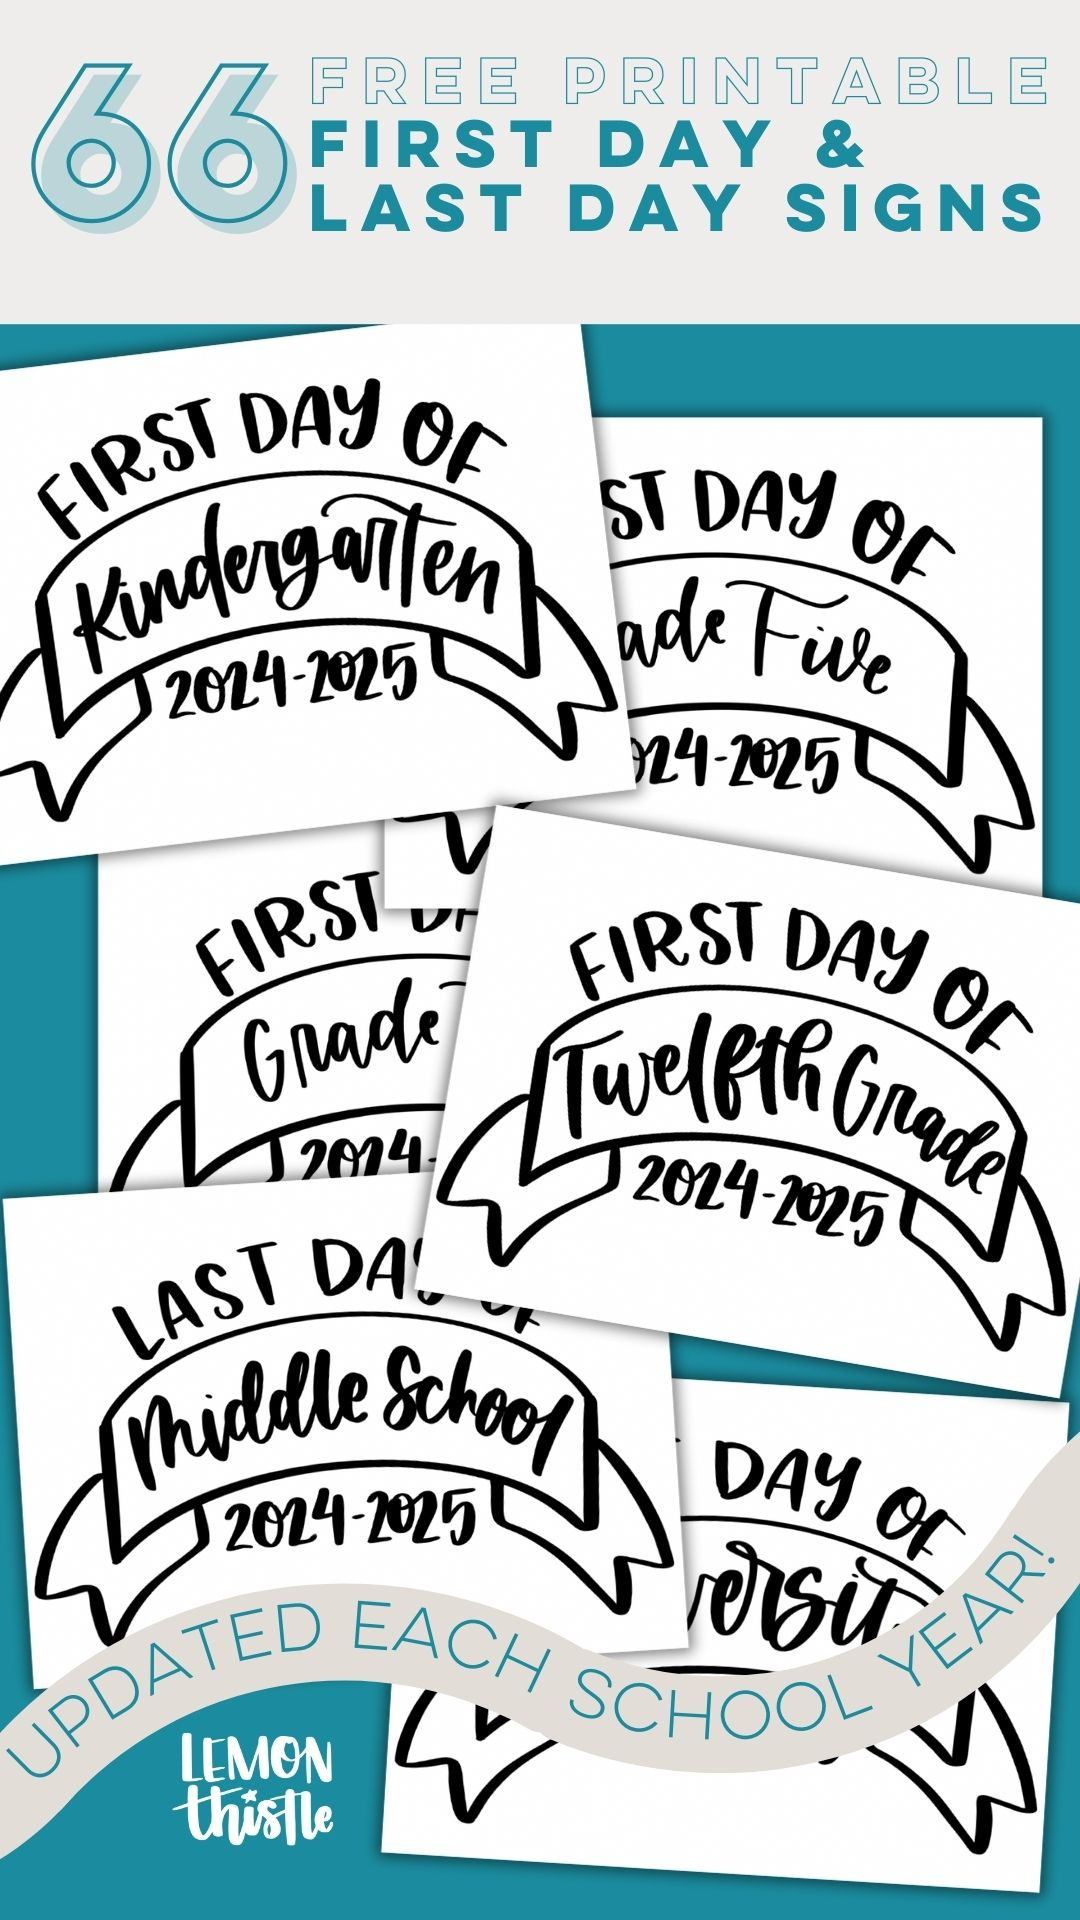 66 FREE PRINTABLE
FIRST DAY &
LAST DAY SIGNS
FIRST DAY OF
Kindergarten
2024-2025
DAY OF
Five
2025
FIRST
Grade
2024-
FIRST DAY OF
Twelfth Grade
2024-2025
LAST DAY OF
Middle School
2024-2025
DAY OF
UPDATED EACH SCHOOL YEAR!
LEMON
thistle